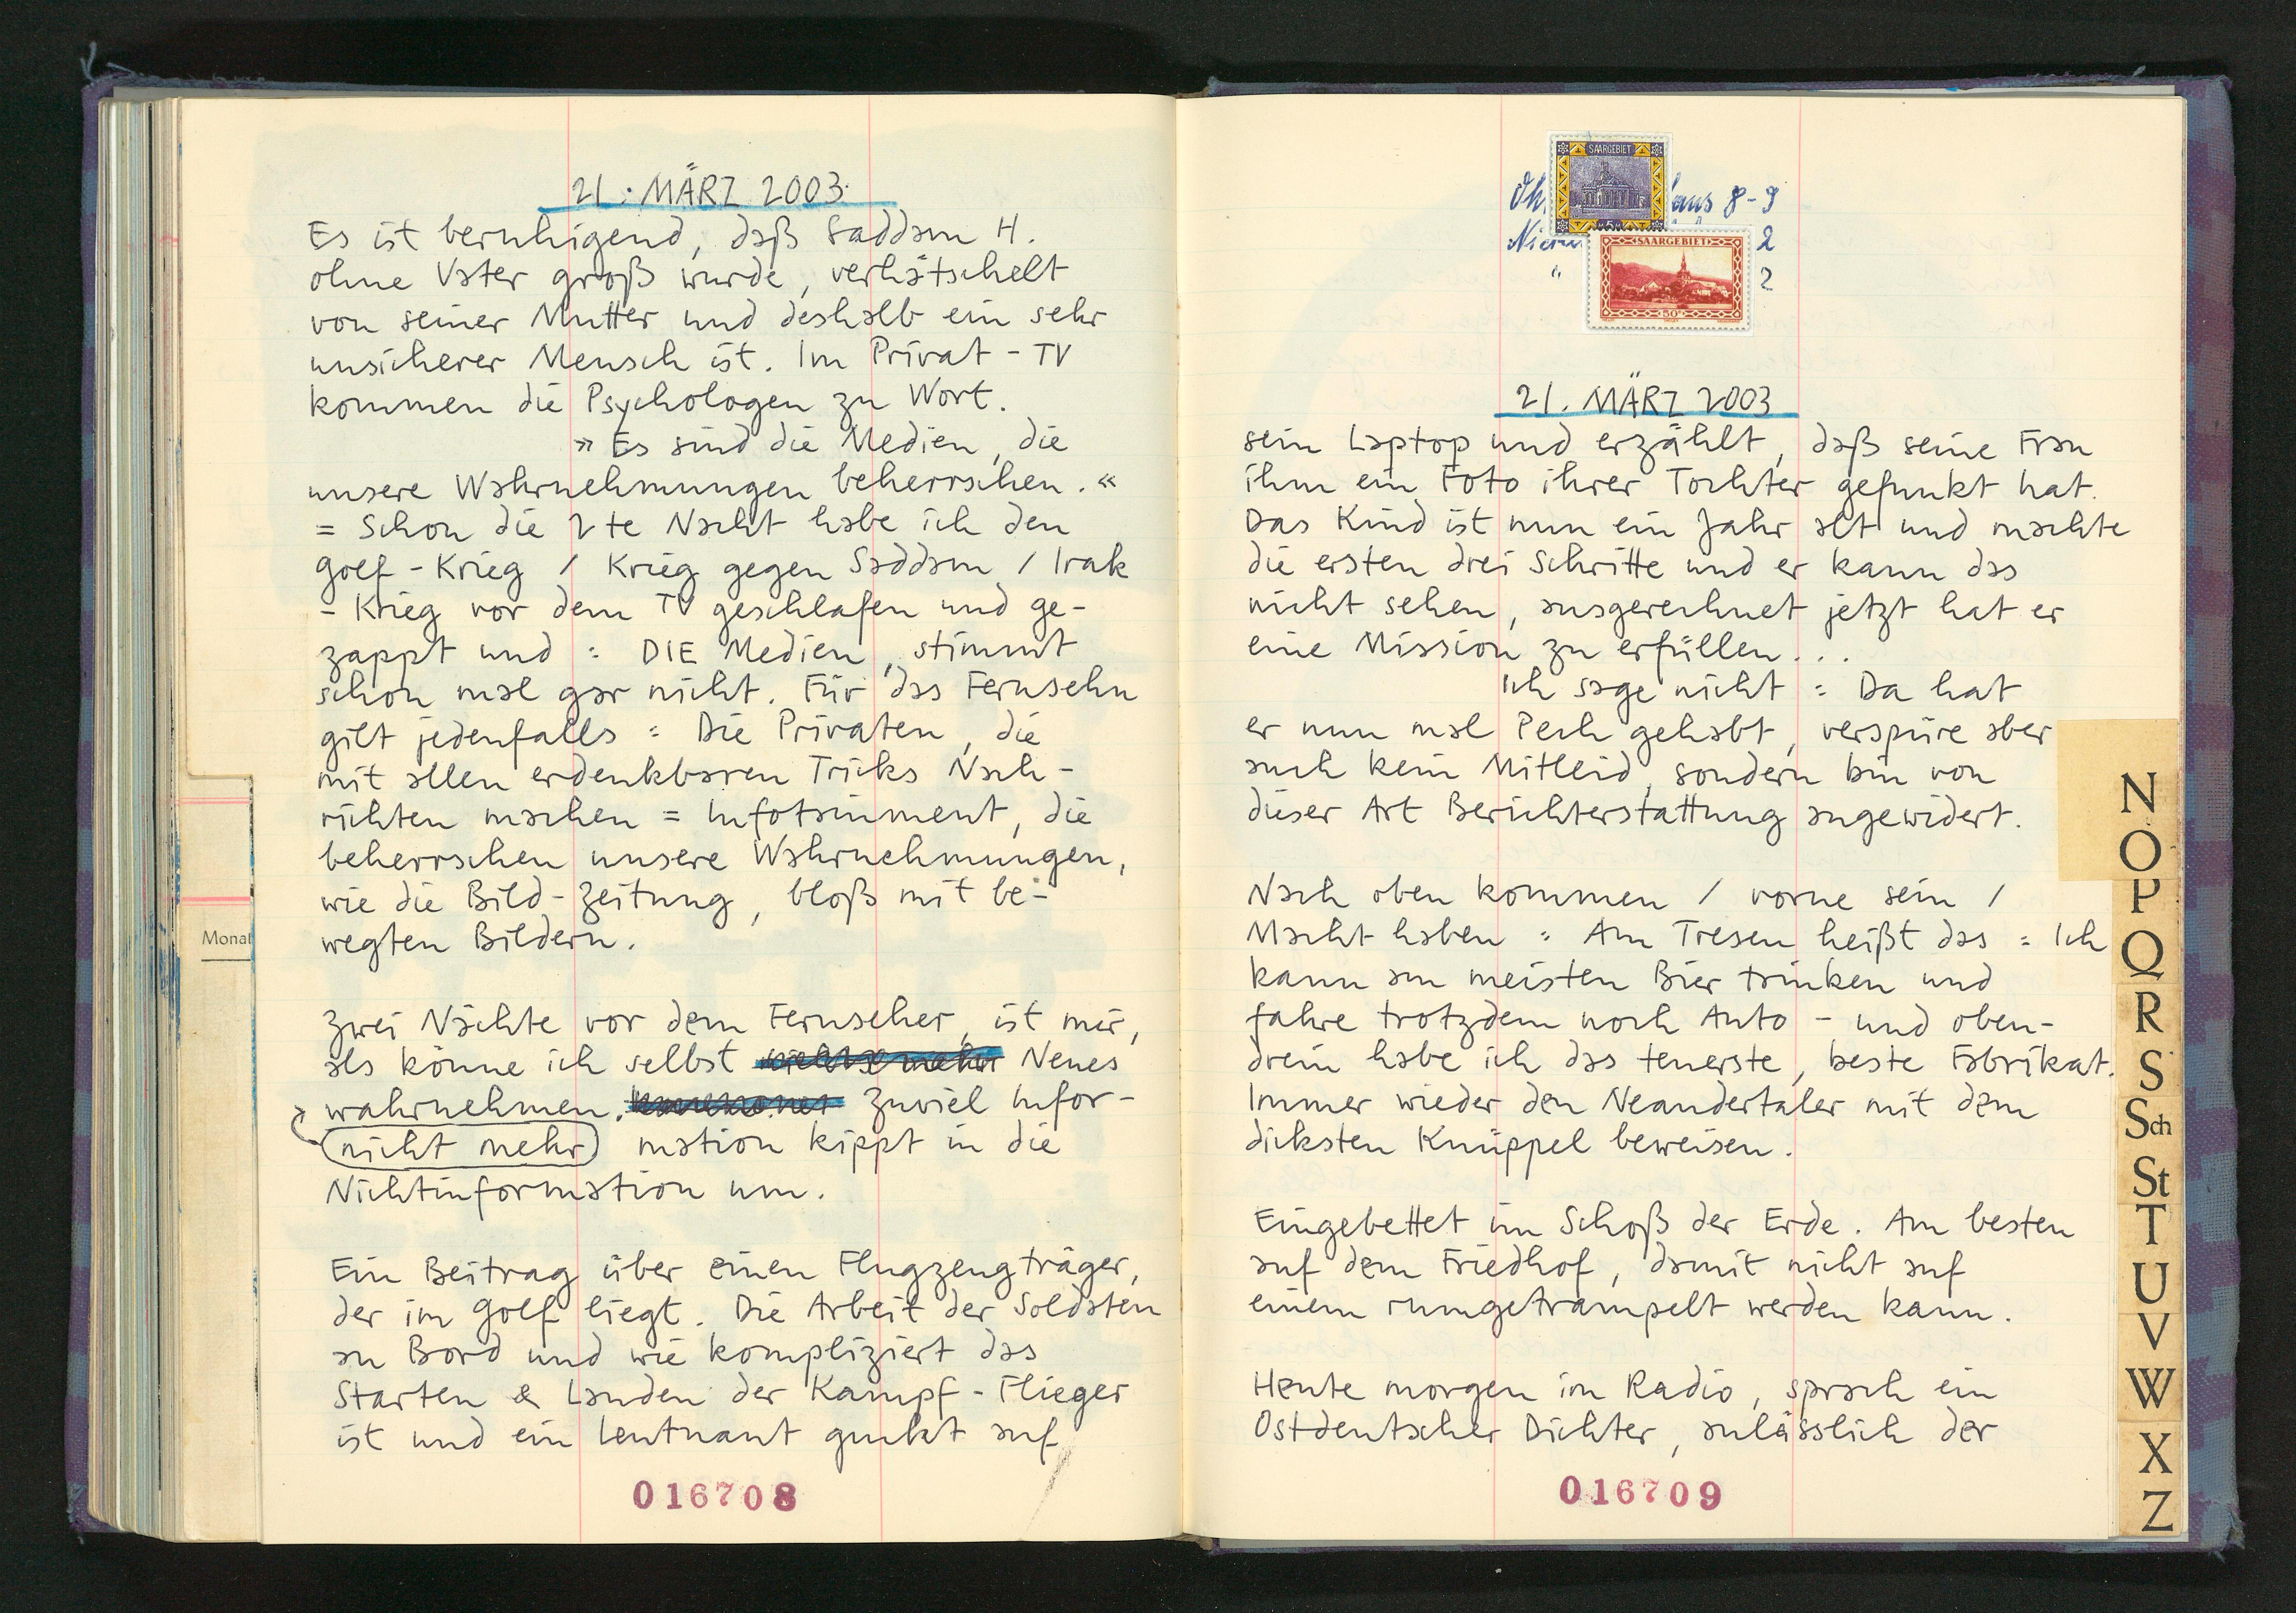 21. MÄRZ 2003.
Es ist beruhigend, daß Saddam H.
ohne Vater groß wurde, verhätschelt
von seiner Mutter und deshalb ein sehr
unsicherer Mensch ist. Im Privat-TV
kommen die Psychologen zu Wort.
» Es sind die Medien, die
unsere Wahrnehmungen beherrschen. «
= Schon die 2te Nacht habe ich den
Golf-Krieg / Krieg gegen Saddam / Irak
- Krieg vor dem TV geschlafen und ge-
zappt und = DIE Medien, stimmt
schon mal gar nicht. Für das Fernsehn
gilt jedenfalls = Die Privaten, die
mit allen erdenkbaren Tricks Nach-
richten machen = Infotainment, die
beherrschen unsere Wahrnehmungen,
wie die Bild-Zeitung, bloß mit be-
wegten Bildern.
Monat
Zwei Nächte vor dem Fernseher, ist mir,
als könne ich selbst Neues
wahrnehmen. Zuviel Infor-
nicht mehr mation kippt in die
Nichtinformation um.
Ein Beitrag über einen Flugzeugträger,
der im Golf liegt. Die Arbeit der Soldaten
an Bord und wie kompliziert das
Starten & Landen der Kampf-Flieger
ist und ein Leutnant guckt auf
016708
SAARGEBIET
8-9
SAARGEBIET
2
" 2
50
21. MÄRZ 2003
sein Laptop und erzählt, daß seine Frau
ihm ein Foto ihrer Tochter gefunkt hat.
Das Kind ist nun ein Jahr alt und machte
die ersten drei Schritte und er kann das
nicht sehen, ausgerechnet jetzt hat er
eine Mission zu erfüllen...
Ich sage nicht = Da hat
er nun mal Pech gehabt, verspüre aber
auch kein Mitleid, sondern bin von
dieser Art Berichterstattung angewidert.
Nach oben kommen / vorne sein /
Macht haben = Am Tresen heißt das = Ich
kann am meisten Bier trinken und
fahre trotzdem noch Auto - und oben-
drein habe ich das teuerste, beste Fabrikat.
Immer wieder den Neandertaler mit dem
dicksten Knüppel beweisen.
Eingebettet im Schoß der Erde. Am besten
auf dem Friedhof, damit nicht auf
einem rumgetrampelt werden kann.
Heute morgen im Radio, sprach ein
Ostdeutscher Dichter, anlässlich der
016709
N
O
P
Q
R
S
Sch
St
T
U
V
W
X
Z